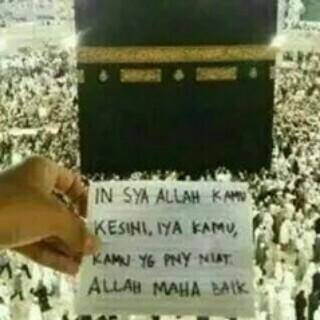 IN SYA ALLAH KAMU
KESINI, IYA KAMU,
KAMU YG PNY NIAT.
ALLAH MAHA BAIK